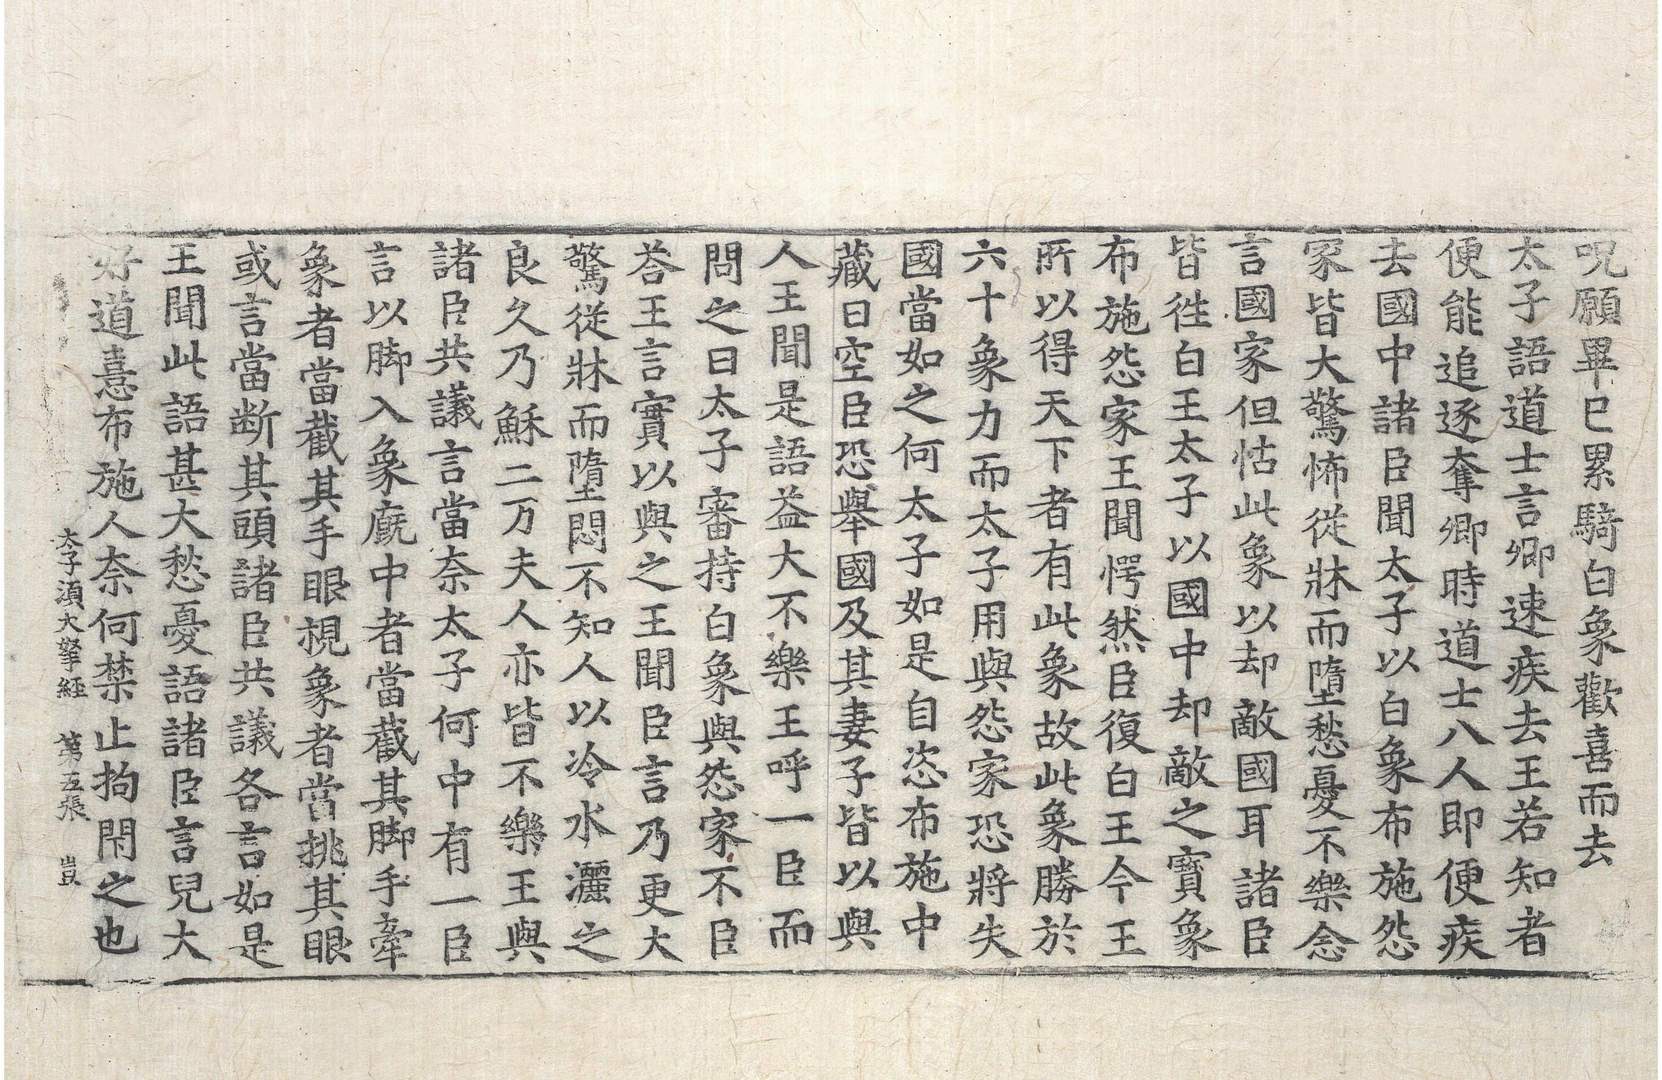 呪願畢已累騎白象歡喜而去
太子語道士言卿速疾去王若知者
便能追逐奪卿時道士八人即便疾
去國中諸臣聞太子以白象布施怨
家皆大驚怖從牀而墮愁憂不樂念
言國家但怙此象以却敵國耳諸臣
皆徃白王太子以國中却敵之寶象
布施怨家王聞愕然臣復白王今王
所以得天下者有此象故此象勝於
六十象力而太子用與怨家恐將失
國當如之何太子如是自恣布施中
藏日空臣恐舉國及其妻子皆以與
人王聞是語益大不樂王呼一臣而
問之曰太子審持白象與怨家不臣
荅王言實以與之王聞臣言乃更大
驚從牀而墮悶不知人以冷水灑之
良久乃穌二万夫人亦皆不樂王與
諸臣共議言當奈太子何中有一臣
言以脚入象廐中者當截其脚手牽
象者當截其手眼視象者當挑其眼
或言當斷其頭諸臣共議各言如是
王聞此語甚大愁憂語諸臣言兒大
好道憙布施人奈何禁止拘閇之也
太子湏大拏経　第五張　豈